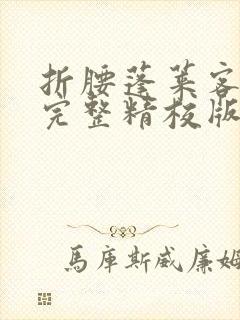 折腰蓬莱客
完整精校版
馬庫斯威廉姆